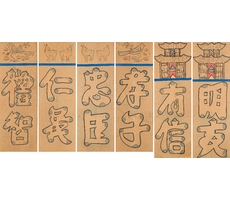 朋友
有信
孝子
忠臣
仁義
禮智